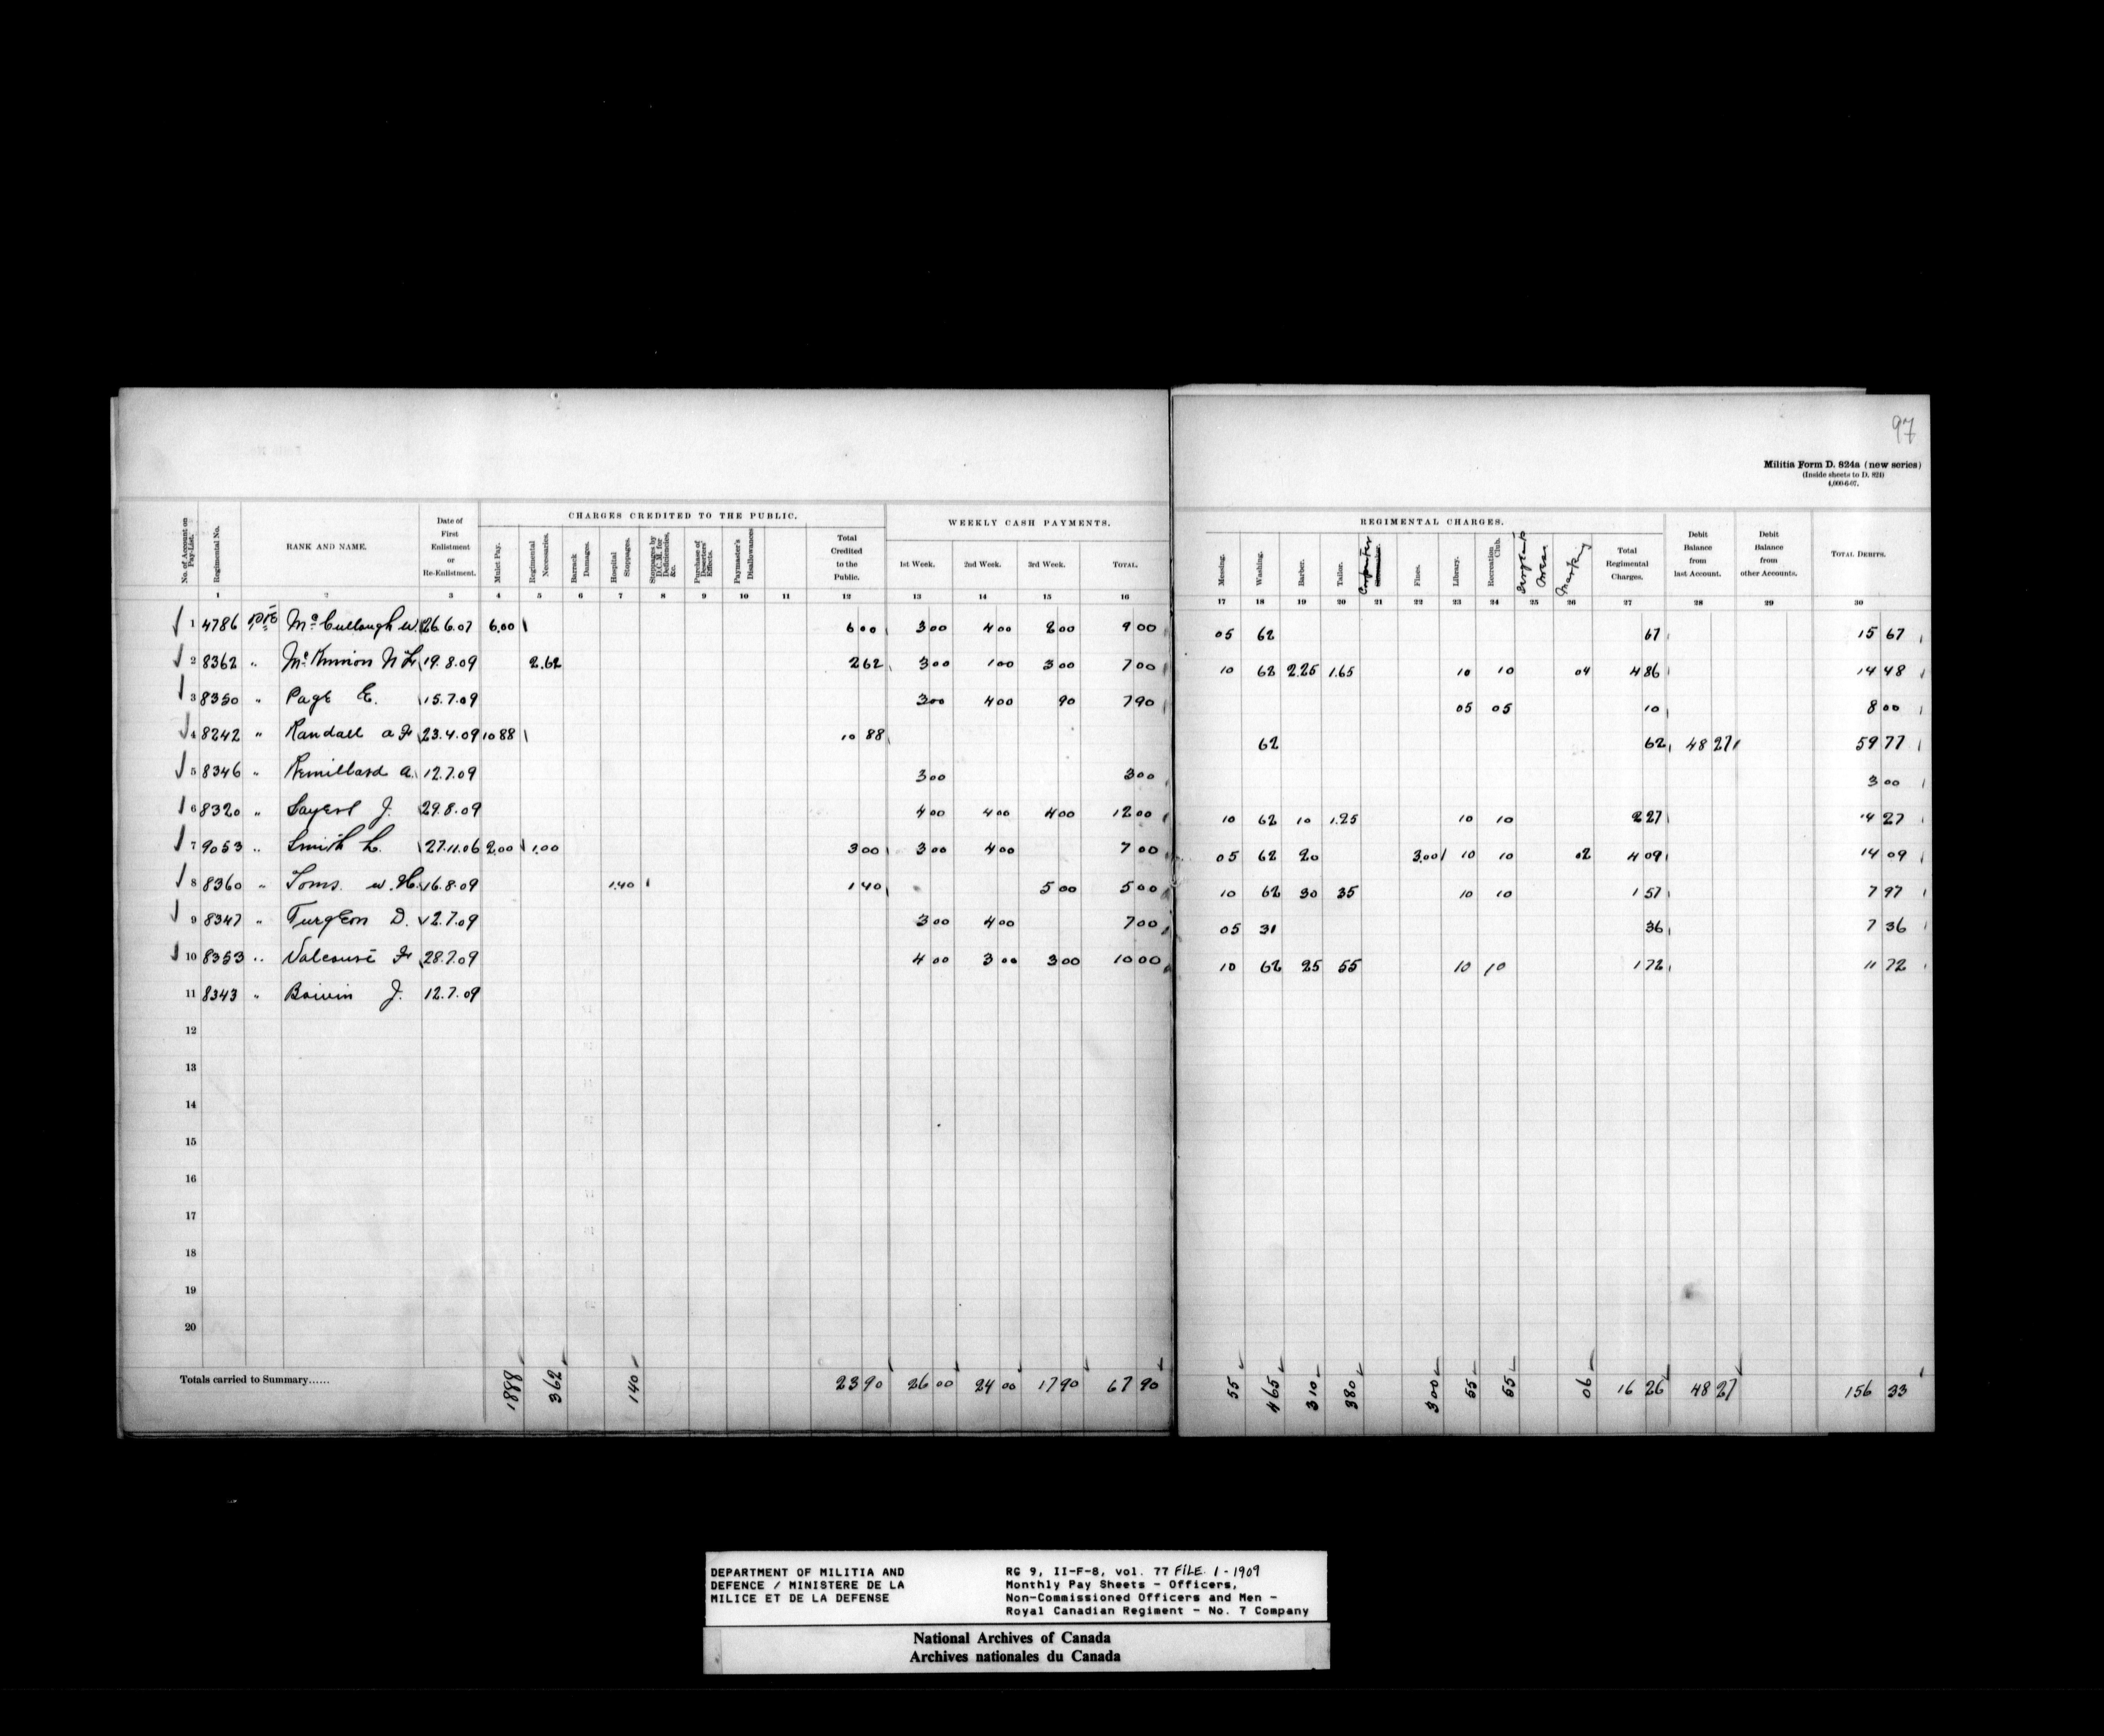 97
Militia Form D. 824a (new series)
(Inside sheets to D. 824)
4,000-6-07.
CHARGES CREDITED TO THE PUBLIC. WEEKLY CASH PAYMENTS. REGIMENTAL CHARGES.
No. of Account on Pay-List. Regimental No. RANK AND NAME. Date of First Enlistment or Re-Enlistment. Mulct Pay. Regimental Necessaries. Barrack Damages. Hospital Stoppages. Stoppages by D.C.M. for Deficiencies, &c. Purchase of Deserters' Effects. Paymaster's Disallowances Total Credited to the Public. 1st Week. 2nd Week. 3rd Week. TOTAL. Messing. Washing. Barber. Tailor. Carpenter Fines. Library. Recreation Club. Sergeants Mess Marking Total Regimental Charges. Debit Balance from last Account. Debit Balance from other Accounts. TOTAL DEBITS.
1 2 3 4 5 6 7 8 9 10 11 12 13 14 15 16 17 18 19 20 21 22 23 24 25 26 27 28 29 30
1 4786 Pte McCullough W. 26.6.07 6.00 6 00 3 00 4 00 2 00 9 00 05 62 67 15 67
2 8362 " McKinnon N 19.8.09 2.62 2 62 3 00 1 00 3 00 7 00 10 62 2.25 1.65 10 10 04 4 86 14 48
3 8350 " Page E. 15.7.09 3 00 4 00 90 7 90 05 05 10 8 00
4 8242 " Randall A F 23.4.09 10 88 10 88 62 62 48 27 59 77
5 8346 " Remillard A. 12.7.09 3 00 3 00 3 00
6 8320 " Sayers J. 29.8.09 4 00 4 00 4 00 12 00 10 62 10 1.25 10 10 2 27 14 27
7 9053 " Smith L. 27.11.06 2.00 1.00 3 00 3 00 4 00 7 00 05 62 20 3.00 10 10 02 4 09 14 09
8 8360 " Toms. W. H. 16.8.09 1.40 1 40 5 00 5 00 10 62 30 35 10 10 1 57 7 97
9 8347 " Turgeon D. 12.7.09 3 00 4 00 7 00 05 31 36 7 36
10 8353 " Valcourt F 28.7.09 4 00 3 00 3 00 10 00 10 62 25 55 10 10 1 72 11 72
11 8343 " Boivin J. 12.7.09
12
13
14
15
16
17
18
19
20
Totals carried to Summary...... 1888 362 140 23 90 26 00 24 00 17 90 67 90 55 465 310 380 300 55 55 06 16 26 48 27 156 33
DEPARTMENT OF MILITIA AND
DEFENCE / MINISTERE DE LA
MILICE ET DE LA DEFENSE
RG 9, II-F-8, vol. 77 FILE 1 - 1909
Monthly Pay Sheets - Officers,
Non-Commissioned Officers and Men -
Royal Canadian Regiment - No. 7 Company
National Archives of Canada
Archives nationales du Canada